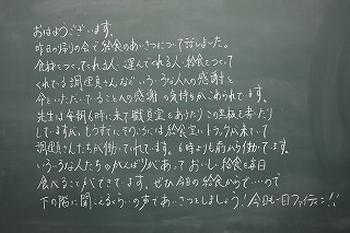 おはようございます。
昨日の帰りの会で給食のあいさつについて話しました。
食材をつくってくれる人、運んでくれる人、給食をつくって
くれている調理員さんなど いろいろな人への感謝と
命をいただいていることへの感謝の気持ちがこめられています。
先生は今朝6時に来て職員室をあけたりこの黒板を書いたり
していますが、もうすでにそのころには給食室にトラックが来ていて
調理員さんたちが働いてくれています。6時よりも前から働いてます。
いろいろな人たちのがんばりがあっておいしい給食を毎日
食べることができています。ぜひ今日の給食からで…ので
下の階に聞こえるくらいの声であいさつをしましょう！今日も一日ファイティン！！